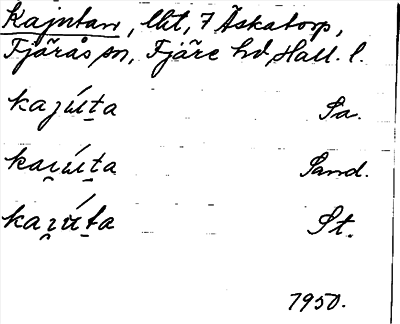 Kajutan, lht, 7 Äskatorp,
Fjärås sn, Fjäre hd, Hall. l.
kajúta Sa.
kaɪ̯úta Sand.
kaɪ̯úta St.
1950.